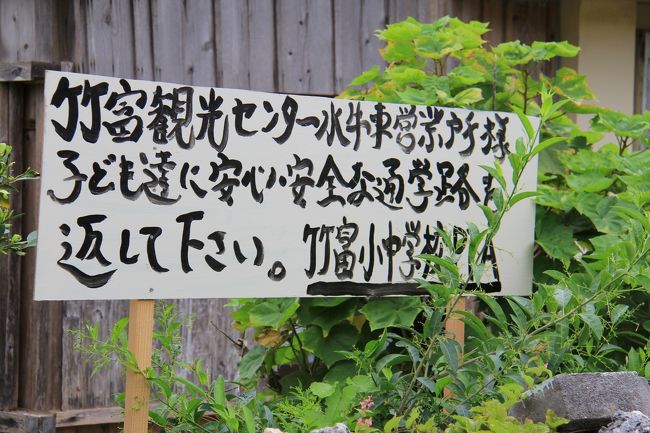 竹富観光センター水牛車営業所様
子ども達に安心・安全な通学路を
返して下さい。竹富小中学校PTA